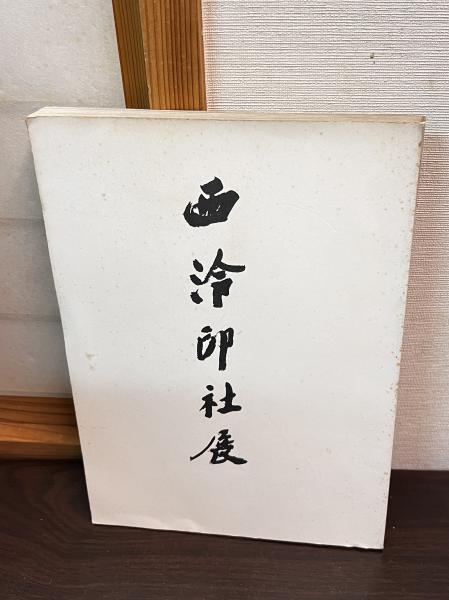 西泠印社展